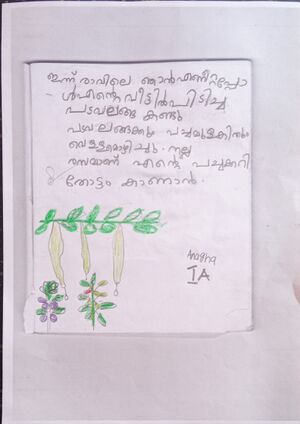 ഇന്ന് രാവിലെ ഞാൻ എണീറ്റപ്പോ
ൾ എന്റെ വീട്ടിൽ പിടിച്ച
പടവലങ്ങ കണ്ടു
പടവലങ്ങക്കും പച്ചമുളകിനും
വെള്ളമൊഴിച്ചു. നല്ല
രസമാണ് എന്റെ പച്ചക്കറി
തോട്ടം കാണാൻ.
Anagha
IA